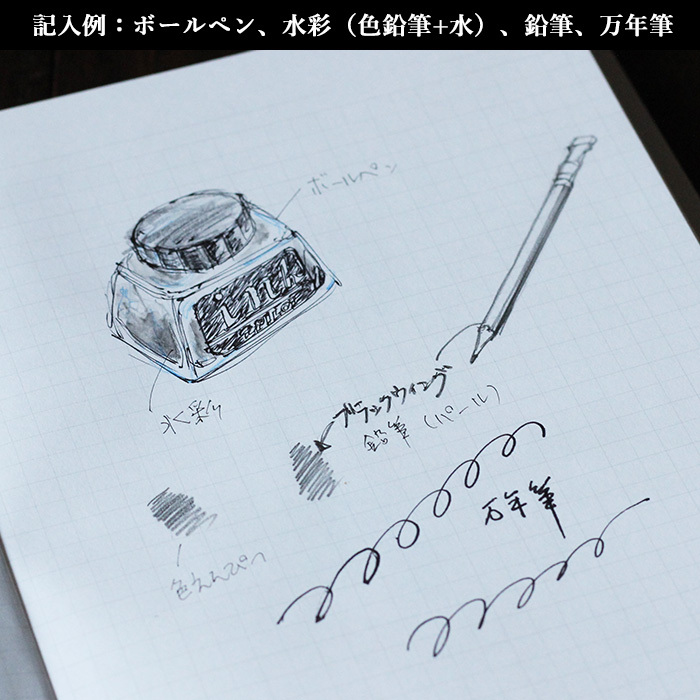 記入例：ボールペン、水彩（色鉛筆+水）、鉛筆、万年筆
ボールペン
ink
PILOT
水彩
ブラックウィング
鉛筆（パール）
万年筆
色えんぴつ